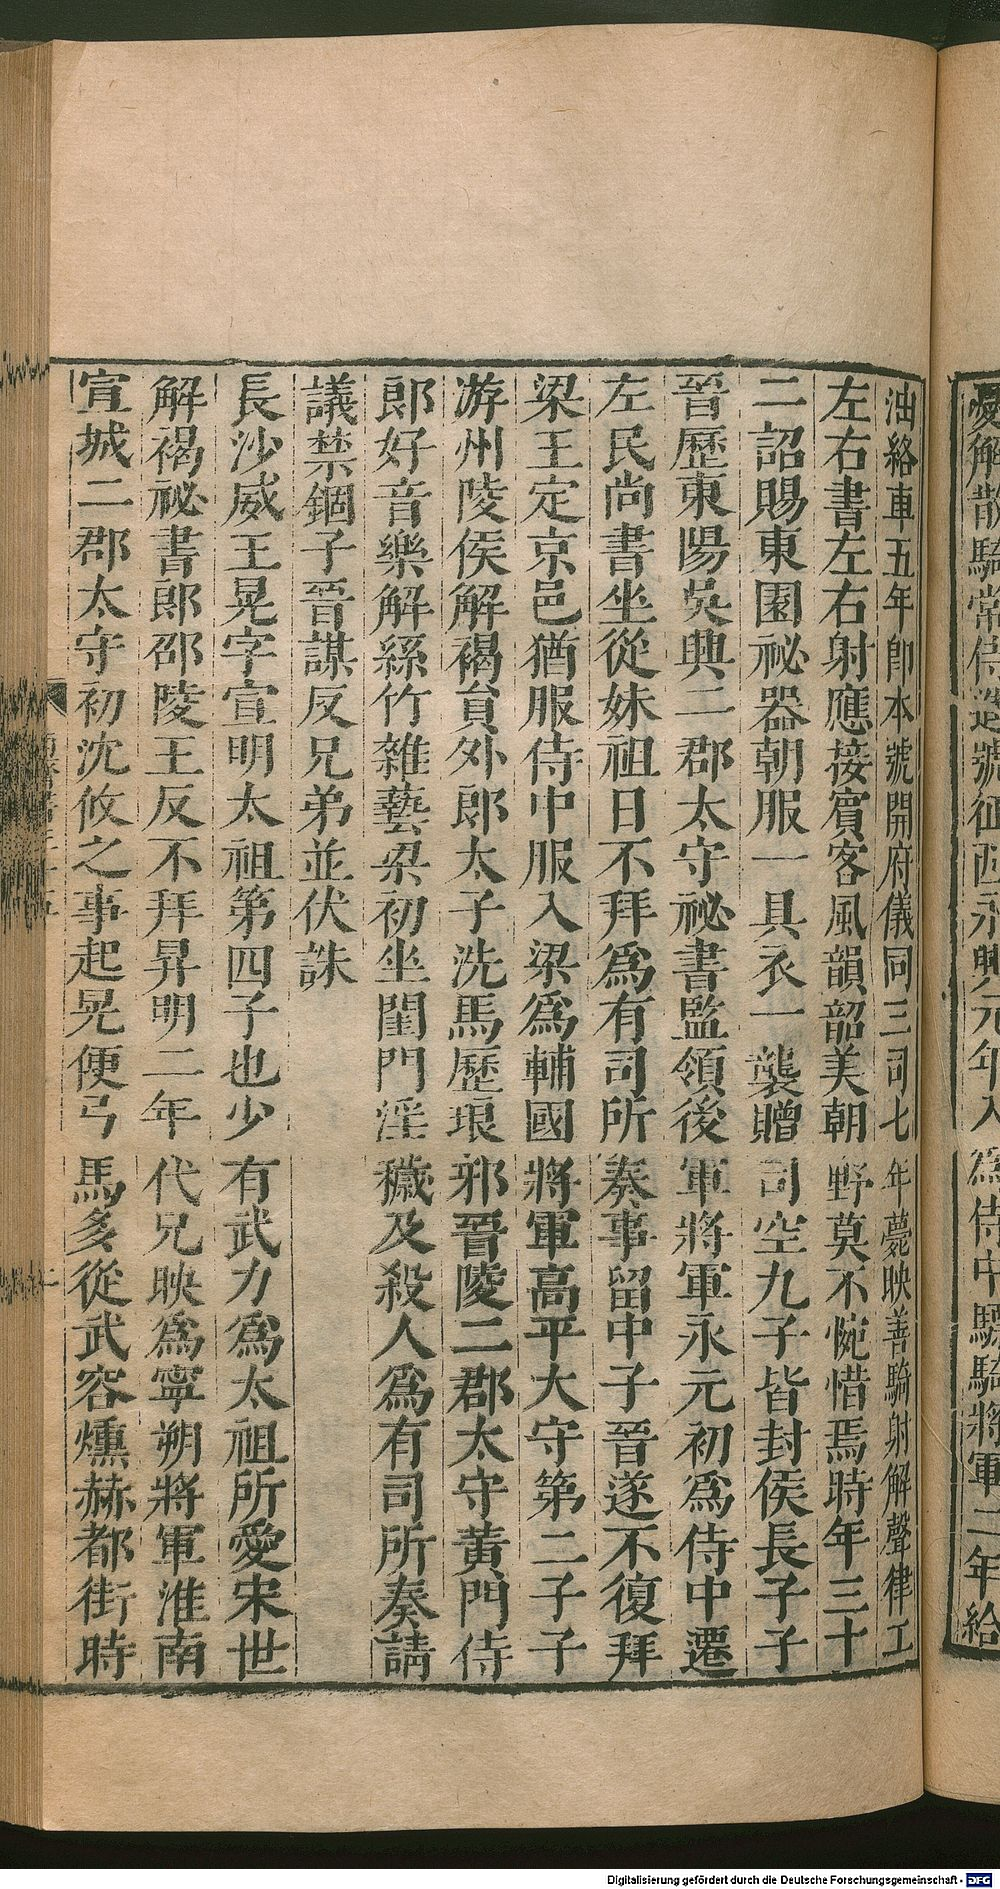 憂解散騎常侍進號征西永興元年入爲侍中驃騎將軍二年給
油絡車五年卽本號開府儀同三司七年薨映善騎射解聲律工
左右書左右射應接賓客風韻韶美朝野莫不惋惜焉時年三十
二詔賜東園祕器朝服一具衣一襲贈司空九子皆封侯長子子
晉歷東陽吳興二郡太守祕書監領後軍將軍永元初爲侍中遷
左民尚書坐從妹祖日不拜爲有司所奏事留中子晉遂不復拜
梁王定京邑猶服侍中服入梁爲輔國將軍高平大守第二子子
游州陵侯解褐員外郎太子洗馬歷琅邪晉陵二郡太守黃門侍
郎好音樂解絲竹雜藝梁初坐閨門淫穢及殺人爲有司所奏請
議禁錮子晉謀反兄弟並伏誅
長沙威王晃字宣明太祖第四子也少有武力爲太祖所愛宋世
解褐祕書郎邵陵王反不拜昇明二年代兄映爲寧朔將軍淮南
宣城二郡太守初沈攸之事起晃便弓馬多從武容燻赫都街時
Digitalisierung gefördert durch die Deutsche Forschungsgemeinschaft - DFG